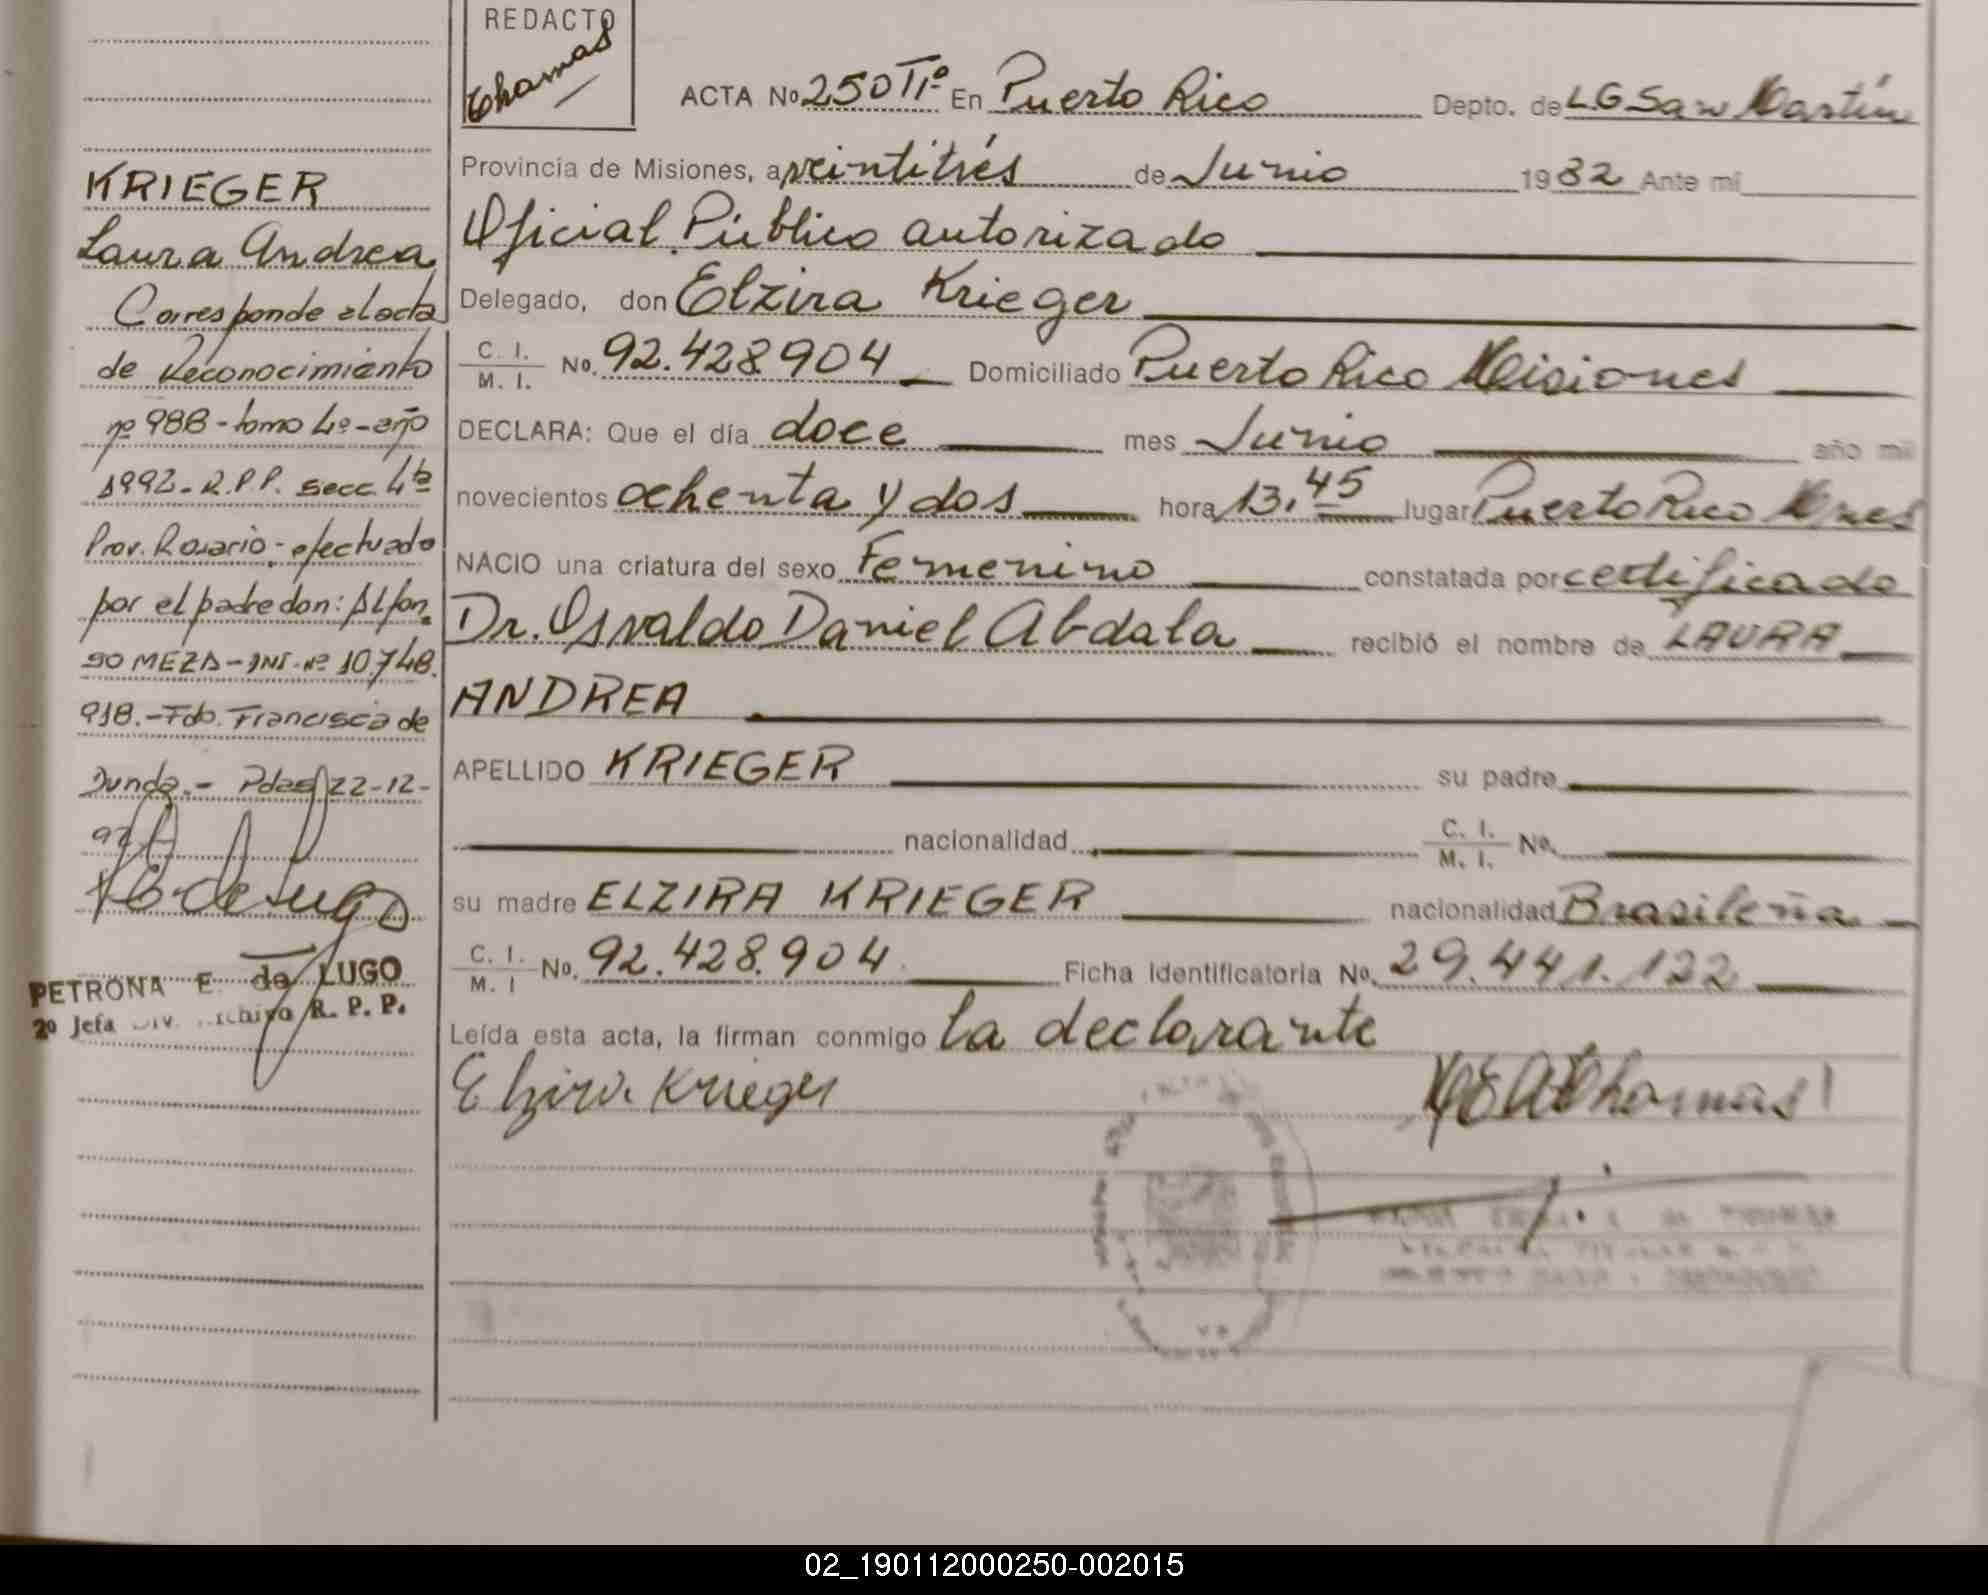 REDACTO
Thomas
ACTA No 250 Tº En Puerto Rico Depto. de L.G San Martín
Provincia de Misiones, a veintitrés de Junio 1982 Ante mí
Oficial Público autorizado
Delegado, don Elzira Krieger
C. I. / M. I. No. 92.428.904 Domiciliado Puerto Rico Misiones
DECLARA: Que el día doce mes Junio año mil
novecientos ochenta y dos hora 13.45 lugar Puerto Rico Mnes
NACIO una criatura del sexo Femenino constatada por certificado
Dr. Osvaldo Daniel Abdala recibió el nombre de LAURA
ANDREA
APELLIDO KRIEGER su padre
nacionalidad C. I. / M. I. No.
su madre ELZIRA KRIEGER nacionalidad Brasileña
C. I. / M. I No. 92.428.904 Ficha Identificatoria No. 29.441.122
Leída esta acta, la firman conmigo la declarante
Elzira Krieger
Thomas
KRIEGER
Laura Andrea
Corresponde al acta
de Reconocimiento
nº 988 - tomo 4º - año
1992 - R.P.P. secc. 4ta
Prov. Rosario - efectuado
por el padre don: Alfon
so MEZA - nº 10.748.
918. - Fdo. Francisca de
Dunda. - Pdas 22-12-
92
PETRONA E. de LUGO
2º Jefa Div. Archivo R. P. P.
02_190112000250-002015